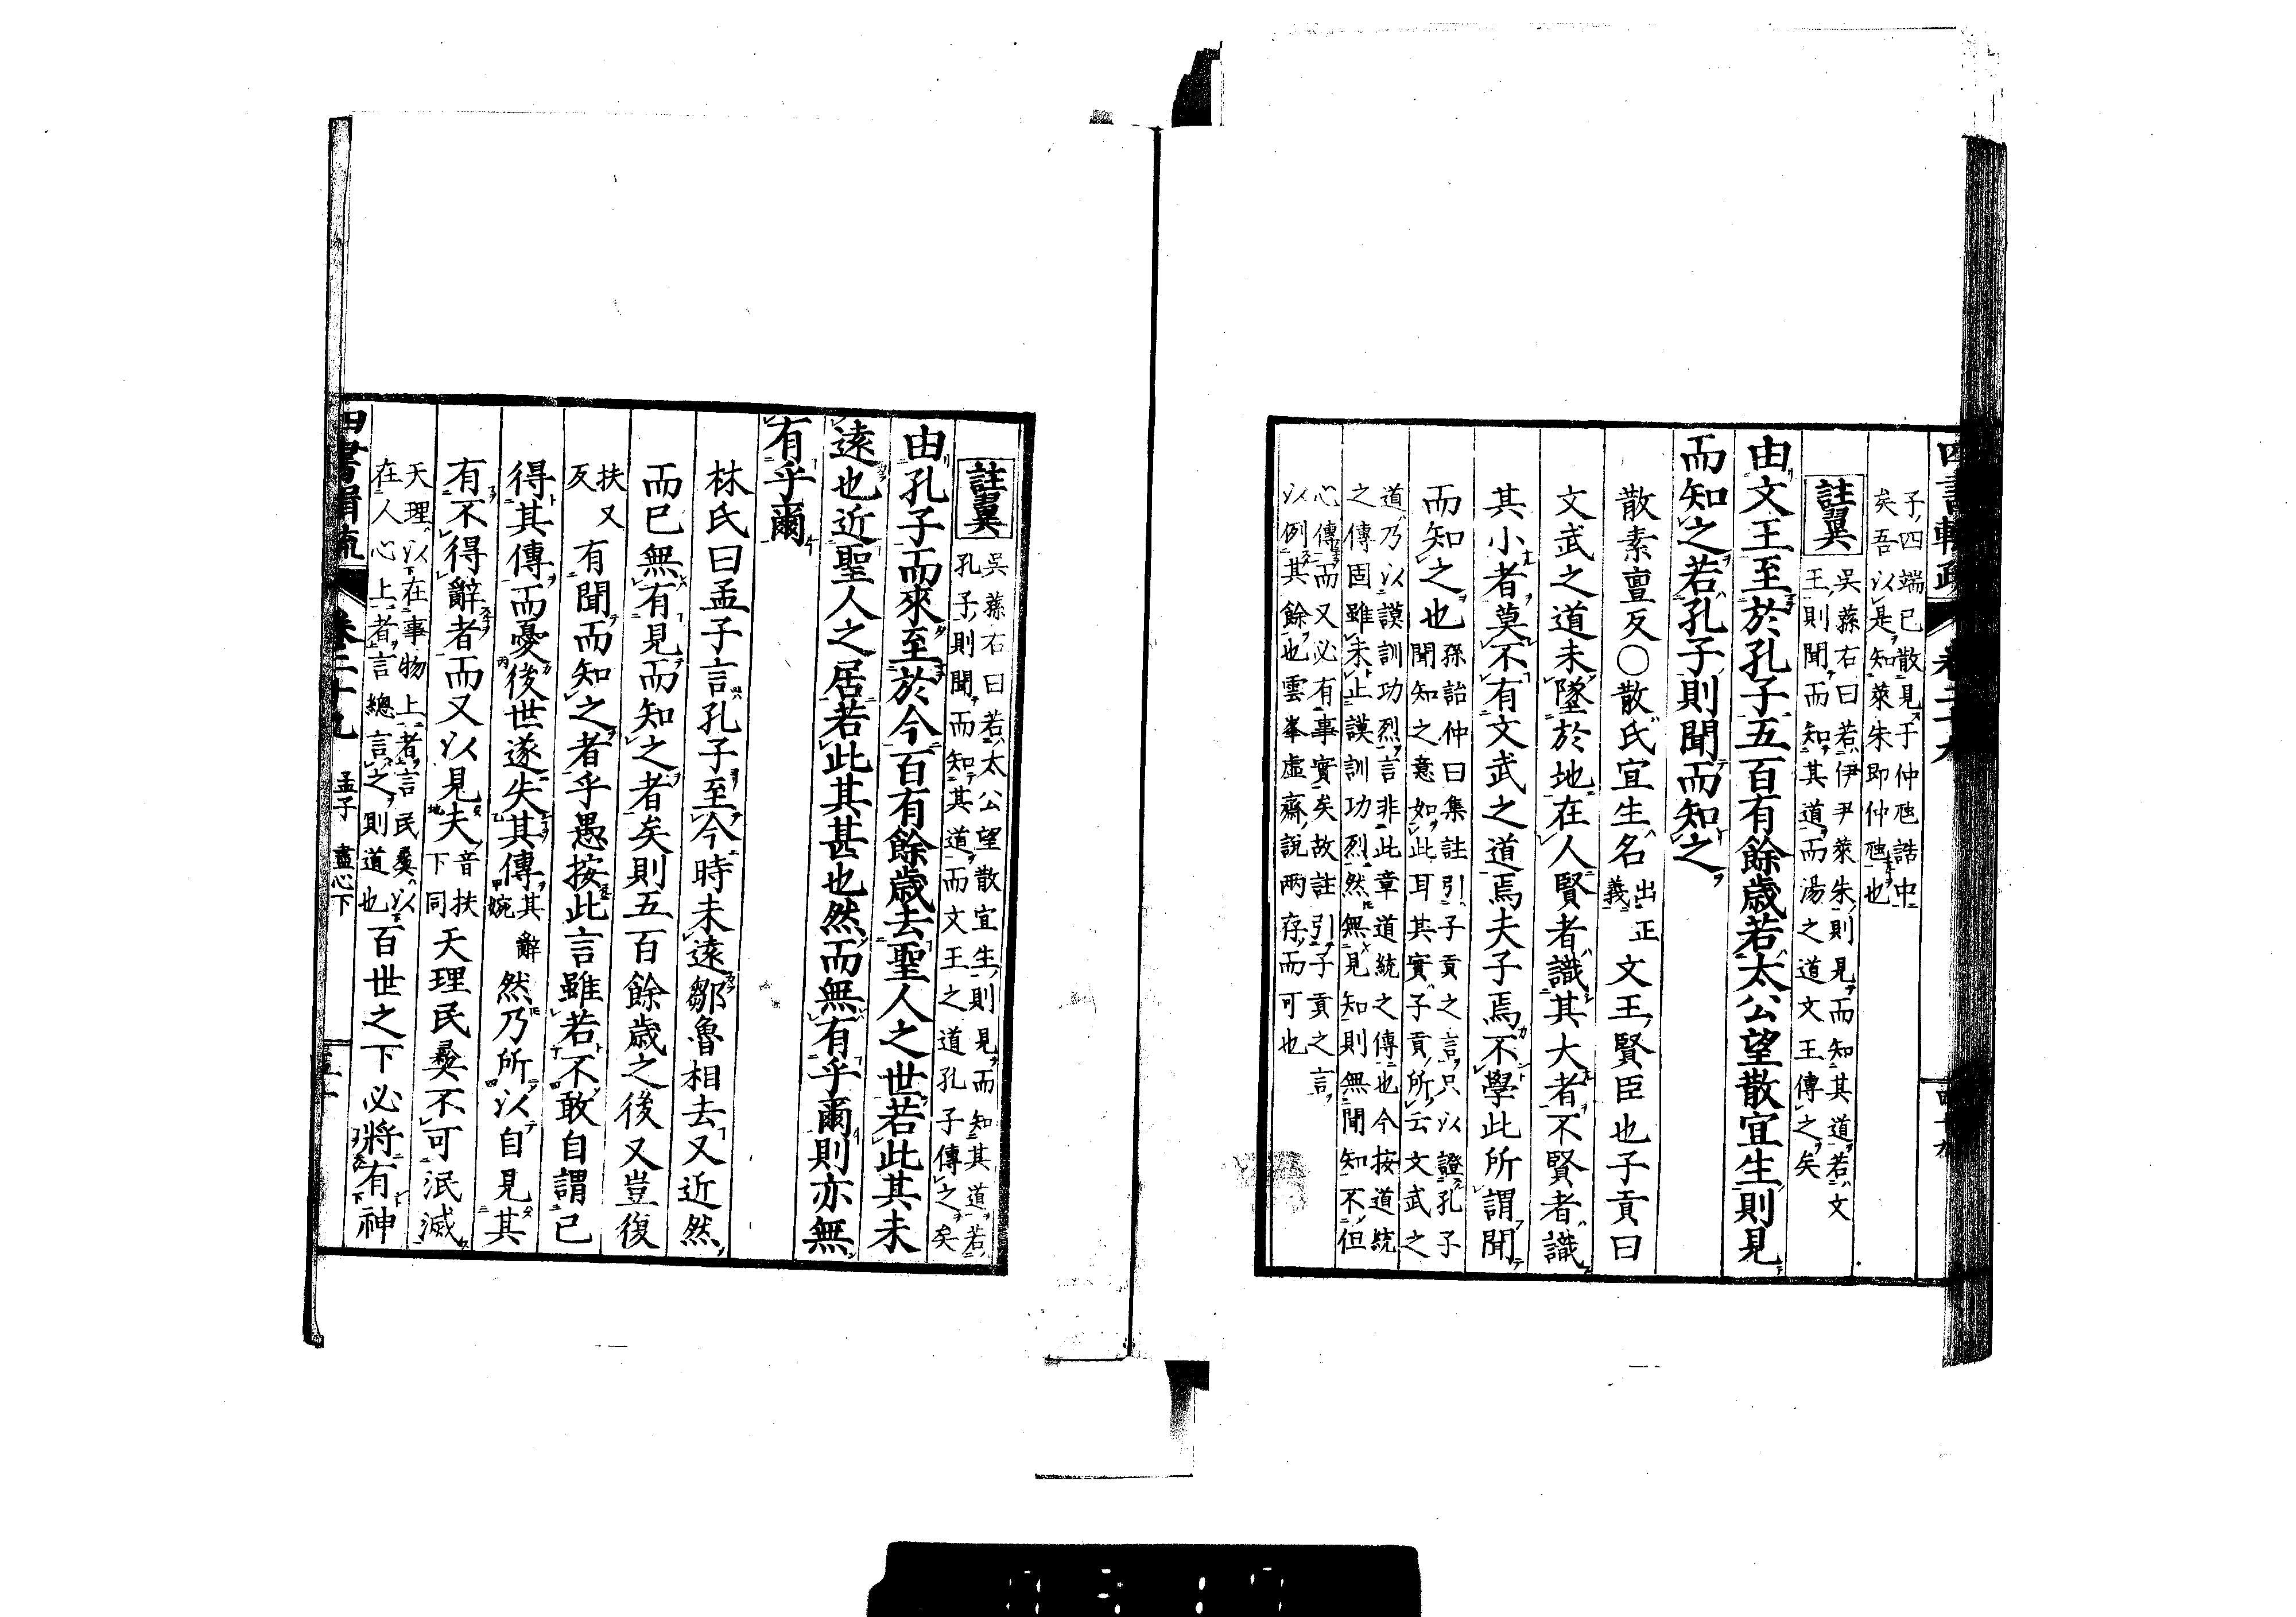 四書輯疏 卷二十九 四十九
子四端已散見于仲虺誥中
矣吾以是知萊朱即仲虺也
註翼
吳蓀右曰若伊尹萊朱則見而知其道若文
王則聞而知其道而湯之道文王傳之矣
由文王至於孔子五百有餘歲若太公望散宜生則見
而知之若孔子則聞而知之
散素亶反〇散氏宜生名出正義文王賢臣也子貢曰
文武之道未墜於地在人賢者識其大者不賢者識
其小者莫不有文武之道焉夫子焉不學此所謂聞
而知之也
孫詒仲曰集註引子貢之言只以證孔子
聞知之意如此耳其實子貢所云文武之
道乃以謨訓功烈言非此章道統之傳也今按道統
之傳固雖未止謨訓功烈然無見知則無聞知不但
心傳而又必有事實矣故註引子貢之言
以例其餘也雲峯虛齋說兩存而可也
註翼
吳蓀右曰若太公望散宜生則見而知其道若
孔子則聞而知其道而文王之道孔子傳之矣
由孔子而來至於今百有餘歲去聖人之世若此其未
遠也近聖人之居若此其甚也然而無有乎爾則亦無
有乎爾
林氏曰孟子言孔子至今時未遠鄒魯相去又近然
而已無有見而知之者矣則五百餘歲之後又豈復
扶又反有聞而知之者乎愚按此言雖若不敢自謂已
得其傳而憂後世遂失其傳其辭婉然乃所以自見其
有不得辭者而又以見夫音扶下同天理民彝不可泯滅
天理以在事物上者言民彝以
在人心上者言總言之則道也
百世之下必將有神
四書輯疏 卷二十九 孟子 盡心下 五十